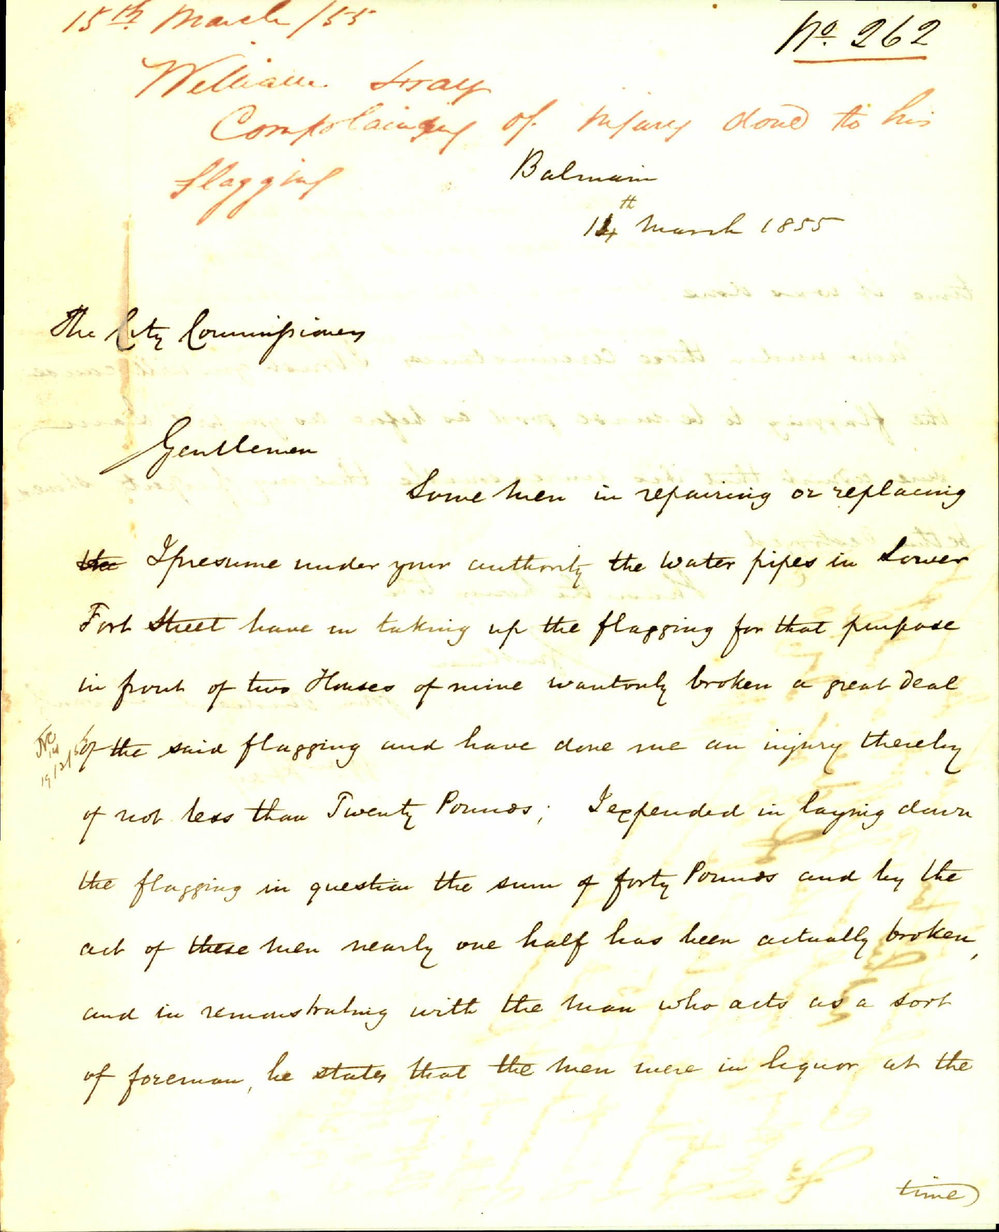 15th March /55
No. 262
William
Complaining of injury done to his
flagging
Balmain
14th March 1855
The City Commissioners
Gentlemen
Some Men in repairing or replacing
the I presume under your authority the Water pipes in Lower
Fort Street have in taking up the flagging for that purpose
in front of two Houses of mine wantonly broken a great deal
of the said flagging and have done me an injury thereby
of not less than Twenty Pounds; I expended in laying down
the flagging in question the sum of forty Pounds and by the
act of these men nearly one half has been actually broken,
and in remonstrating with the man who acts as a sort
of foreman, he states that the men were in liquor at the
time